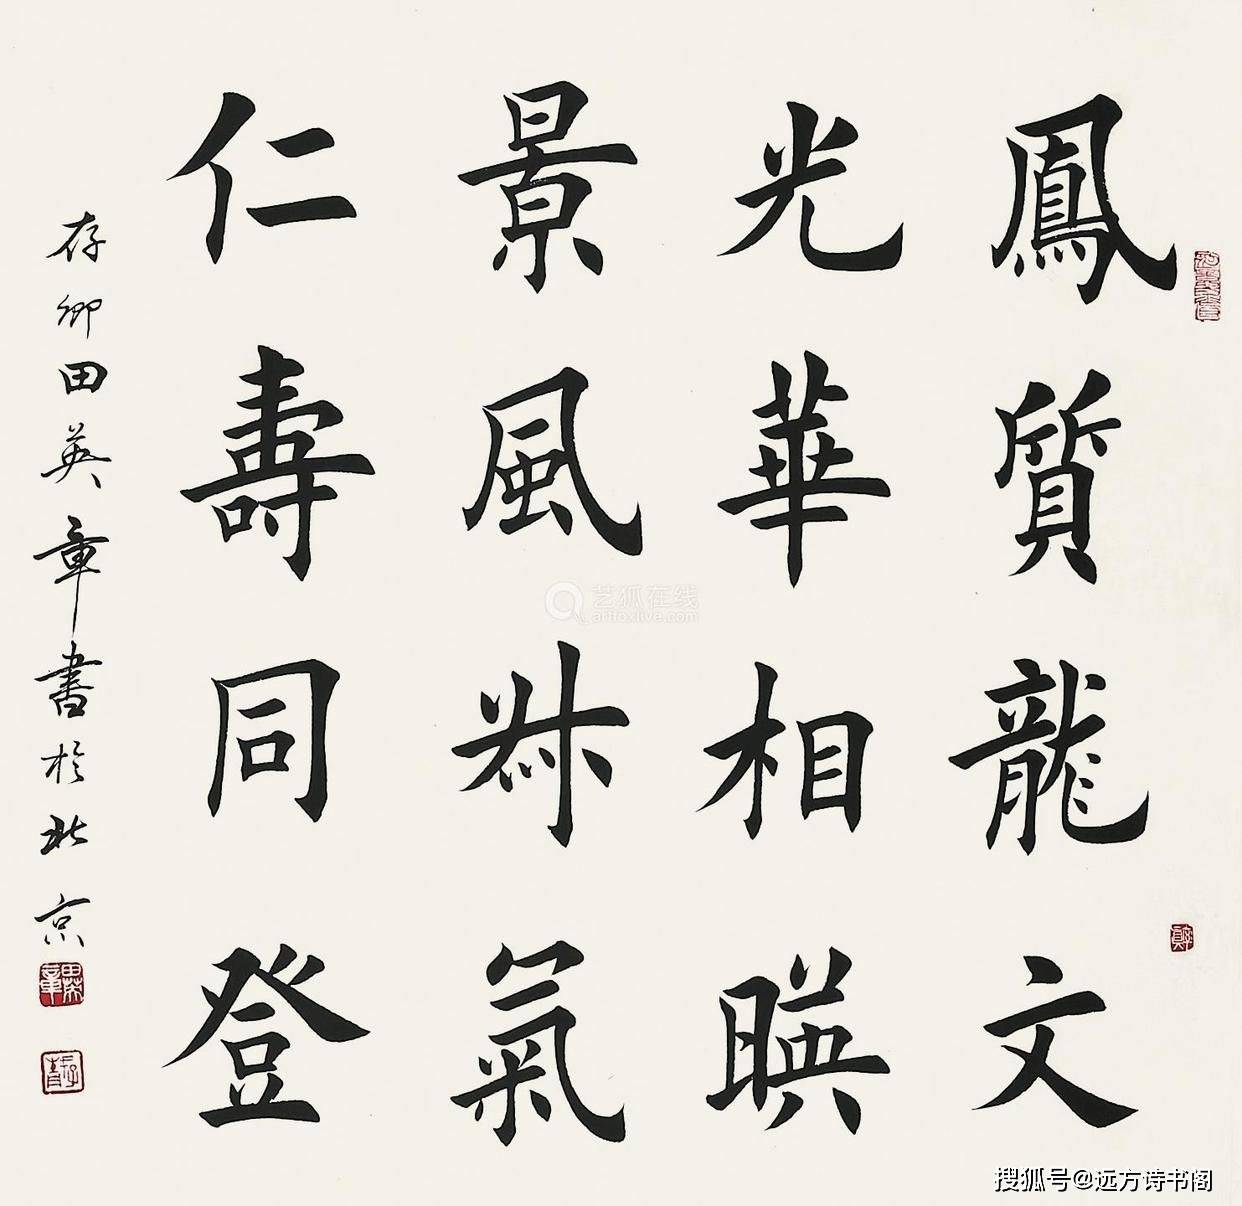 鳳質龍文
光華相暎
景風氣
仁壽同登
存卿田英章書於北京
田英章
艺狐在线
artfoxlive.com
搜狐号@远方诗书阁